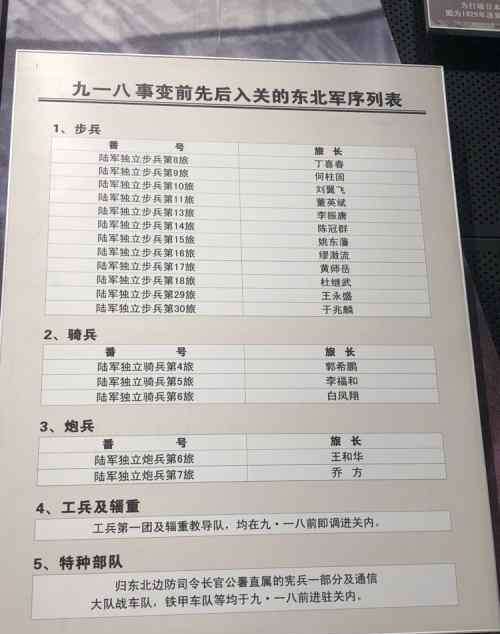 九一八事变前先后入关的东北军序列表
1、步兵
番 号 旅 长
陆军独立步兵第8旅 丁喜春
陆军独立步兵第9旅 何柱国
陆军独立步兵第10旅 刘翼飞
陆军独立步兵第11旅 董英斌
陆军独立步兵第13旅 李振唐
陆军独立步兵第14旅 陈冠群
陆军独立步兵第15旅 姚东藩
陆军独立步兵第16旅 缪澂流
陆军独立步兵第17旅 黄师岳
陆军独立步兵第18旅 杜继武
陆军独立步兵第29旅 王永盛
陆军独立步兵第30旅 于兆麟
2、骑兵
番 号 旅 长
陆军独立骑兵第4旅 郭希鹏
陆军独立骑兵第5旅 李福和
陆军独立骑兵第6旅 白凤翔
3、炮兵
番 号 旅 长
陆军独立炮兵第6旅 王和华
陆军独立炮兵第7旅 乔 方
4、工兵及辎重
工兵第一团及辎重教导队，均在九·一八前即调进关内。
5、特种部队
归东北边防司令长官公署直属的宪兵一部分及通信
大队战车队，铁甲车队等均于九·一八前进驻关内。